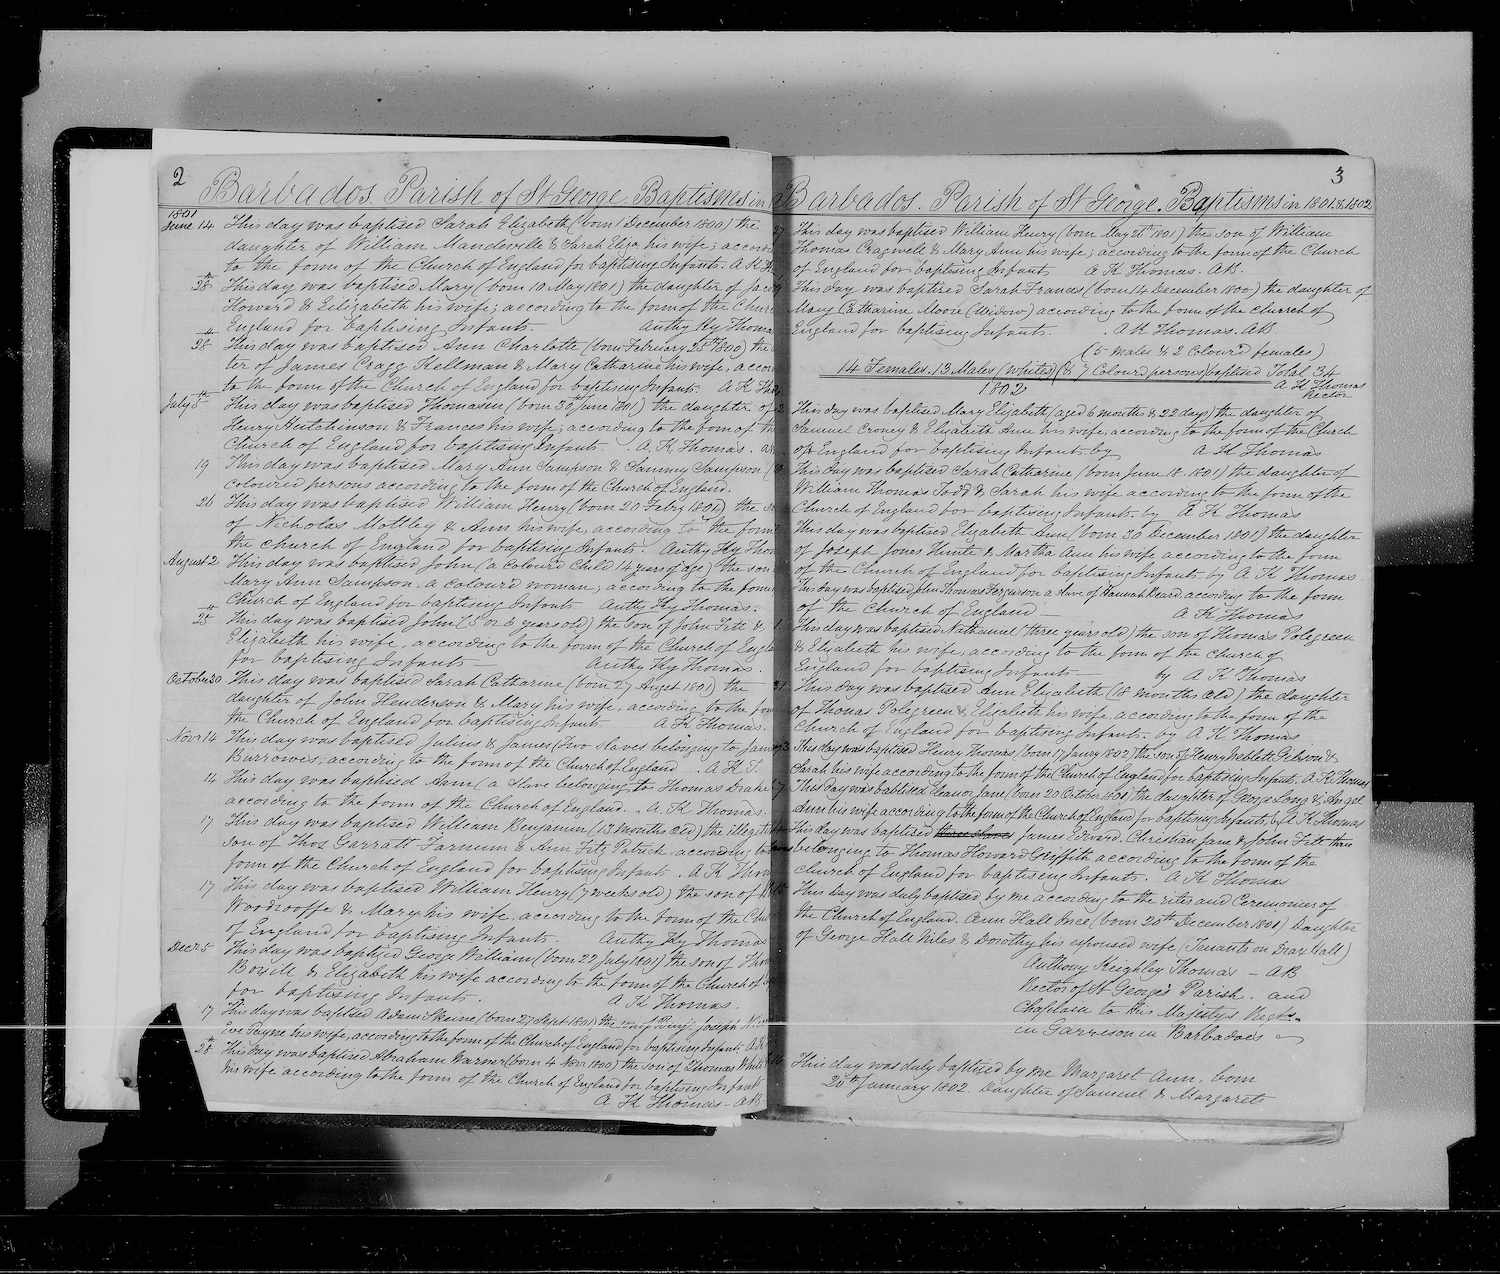 2
Barbados. Parish of St George. Baptisms in
1801
June 14 This day was baptised Sarah Elizabeth (born 1 December 1800) the
daughter of William Manderville & Sarah Eliza his wife; accord
to the form of the Church of England for baptising Infants. A K
28th This day was baptised Mary (born 10 May 1801) the daughter of Jacob
Howard & Elizabeth his wife; according to the form of the Church
England for baptising Infants. Anthy Ky Thomas
28th This day was baptised Ann Charlotte (born February 25th 1800) the
ter of James Cragg Kellman & Mary Catharine his wife, accor
to the form of the Church of England for baptising Infants. A K Tho
July 5th This day was baptised Thomasin (born 30th June 1801) the daughter of
Henry Hutchinson & Frances his wife; according to the form of the
Church of England for baptising Infants. A. K Thomas.
19 This day was baptised Mary Ann Sampson & Sammy Sampson
coloured persons according to the form of the Church of England.
26 This day was baptised William Henry (born 20 Febry 1801) the
of Nicholas Mottley & Ann his wife, according to the form
the Church of England for baptising Infants. Anthy Ky Thom
August 2 This day was baptised John (a Colour'd Child 14 years of age) the son
Mary Ann Sampson, a colour'd woman; according to the form
Church of England for baptising Infants Anthy Ky Thomas.
25th This day was baptised John (5 or 6 years old) the son of John Fitt &
Elizabeth his wife, according to the form of the Church of Engla
for baptising Infants — Anthy Ky Thomas.
October 30 This day was baptised Sarah Catharine (born 27 Augst 1801) the
daughter of John Henderson & Mary his wife, according to the for
the Church of England for baptising Infants A K Thomas.
Novr 14 This day was baptised Julius & James (Two slaves belonging to James
Burrowes, according to the form of the Church of England. A K T.
14 This day was baptised Ann (a slave belonging to Thomas Drake
according to the form of the Church of England. A. K Thomas.
17 This day was baptised William Benjamin (13 months old) the illegit
son of Thos Garratt Farnum & Ann Fitz Patrick, according to
form of the Church of England for baptising Infants. A K Thom
17 This day was baptised William Henry (7 weeks old) the son of
Woodrooffe & Mary his wife, according to the form of the Chu
of England for baptising Infants. Anthy Ky Thomas
Decr 5 This day was baptized George William (born 22 July 1801) the son of Thom
Bovill & Elizabeth his wife according to the form of the Church of
for baptising Infants. A K Thomas.
17 This day was baptised Adam Skeine (born 27 Sept 1801) the son of Benj: Joseph
Eve Payne his wife, according to the form of the Church of England for baptising Infants. A K
28th This day was baptised Abraham Warner (born 4 Novr 1800) the son of Thomas White
his wife according to the form of the Church of England for baptising Infants
A K Thomas — AB
3
Barbados. Parish of St George. Baptisms in 1801. & 1802
This day was baptised William Henry (born May 21st 1801) the son of William
Thomas Cragwell & Mary Ann his wife, according to the form of the Church
of England for baptising Infants A K Thomas. AB.
This day was baptised Sarah Frances (born 14 December 1800) the daughter of
Mary Catharine Moore (Widow) according to the form of the Church of
England for baptising Infants. A K Thomas. AB
(5 males & 2 Colour'd females)
14 Females. 13 Males (Whites) (& 7 Colour'd persons) baptised Total 34
A K Thomas
Rector
1802
This day was baptised Mary Elizabeth (aged 6 months & 22 days) the daughter of
Samuel Croney & Elizabeth Ann his wife, according to the form of the Church
of England for baptising Infants by A K Thomas
This day was baptised Sarah Catharine (born June 18. 1801) the daughter of
William Thomas Todd & Sarah his wife according to the form of the
Church of England for baptising Infants by A K Thomas
This day was baptised Elizabeth Ann (born 30 December 1801) the daughter
of Joseph Jones Hinte & Martha Ann his wife according to the form
of the Church of England for baptising Infants. by A K Thomas
This day was baptised John Thomas Ferguson a slave of Hannah Beard according to the form
of the Church of England — A K Thomas
This day was baptised Nathaniel (three years old) the son of Thomas Polegreen
& Elizabeth his wife, according to the form of the Church of
England for baptising Infants — by A K Thomas
This day was baptised Ann Elizabeth (18 months old) the daughter
of Thomas Polegreen & Elizabeth his wife, according to the form of the
Church of England for baptising Infants. by A. K Thomas
This day was baptised Henry Thomas (born 17 Janry 1802) the son of Henry Neblett Gibson &
Sarah his wife according to the form of the Church of England for baptising Infants. A K Thomas
This day was baptised Eleanor Jane (born 20 October 1801) the daughter of George Long & Angel
Ann his wife according to the form of the Church of England for baptising Infants by A K Thomas
This day was baptised three slaves James Edward. Christian Jane & John Fitt
belonging to Thomas Howard Griffith according to the form of the
Church of England for baptising Infants. A K Thomas
This day was duly baptised by me according to the rites and Ceremonies of
the Church of England. Ann Hall Ince (born 20th December 1801) Daughter
of George Hall Niles & Dorothy his espoused wife (Tenants on Drax Hall)
Anthony Keighley Thomas — AB
Rector of St George's Parish. and
Chaplain to His Majesty's
in Garrison in Barbadoes
This day was duly baptised by me Margaret Ann. born
28th January 1802. Daughter of Samuel & Margarett